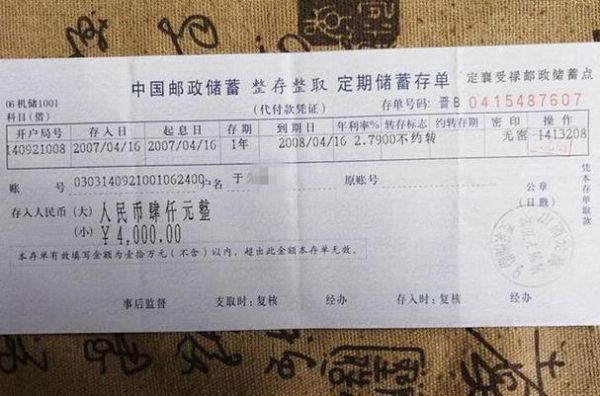 中国邮政储蓄 整存整取 定期储蓄存单 定襄受禄邮政储蓄点
06机储1001 (代付款凭证) 存单号码: 晋B 0415487607
科目(借)
开户局号 存入日 起息日 存期 到期日 年利率% 转存标志 约转存期 密印 操作
140921008 2007/04/16 2007/04/16 1年 2008/04/16 2.7900 不约转 无密 1413208
账 号 030314092100106240​0 户名 于 原账号 公章
存入人民币 (大) 人民币肆仟元整 (日戳)
(小) ¥4,000.00
本存单有效填写金额为壹拾万元(不含)以内,超出此金额本存单无效。
事后监督 支取时: 复核 经办 存入时: 复核 经办
凭本存单取款